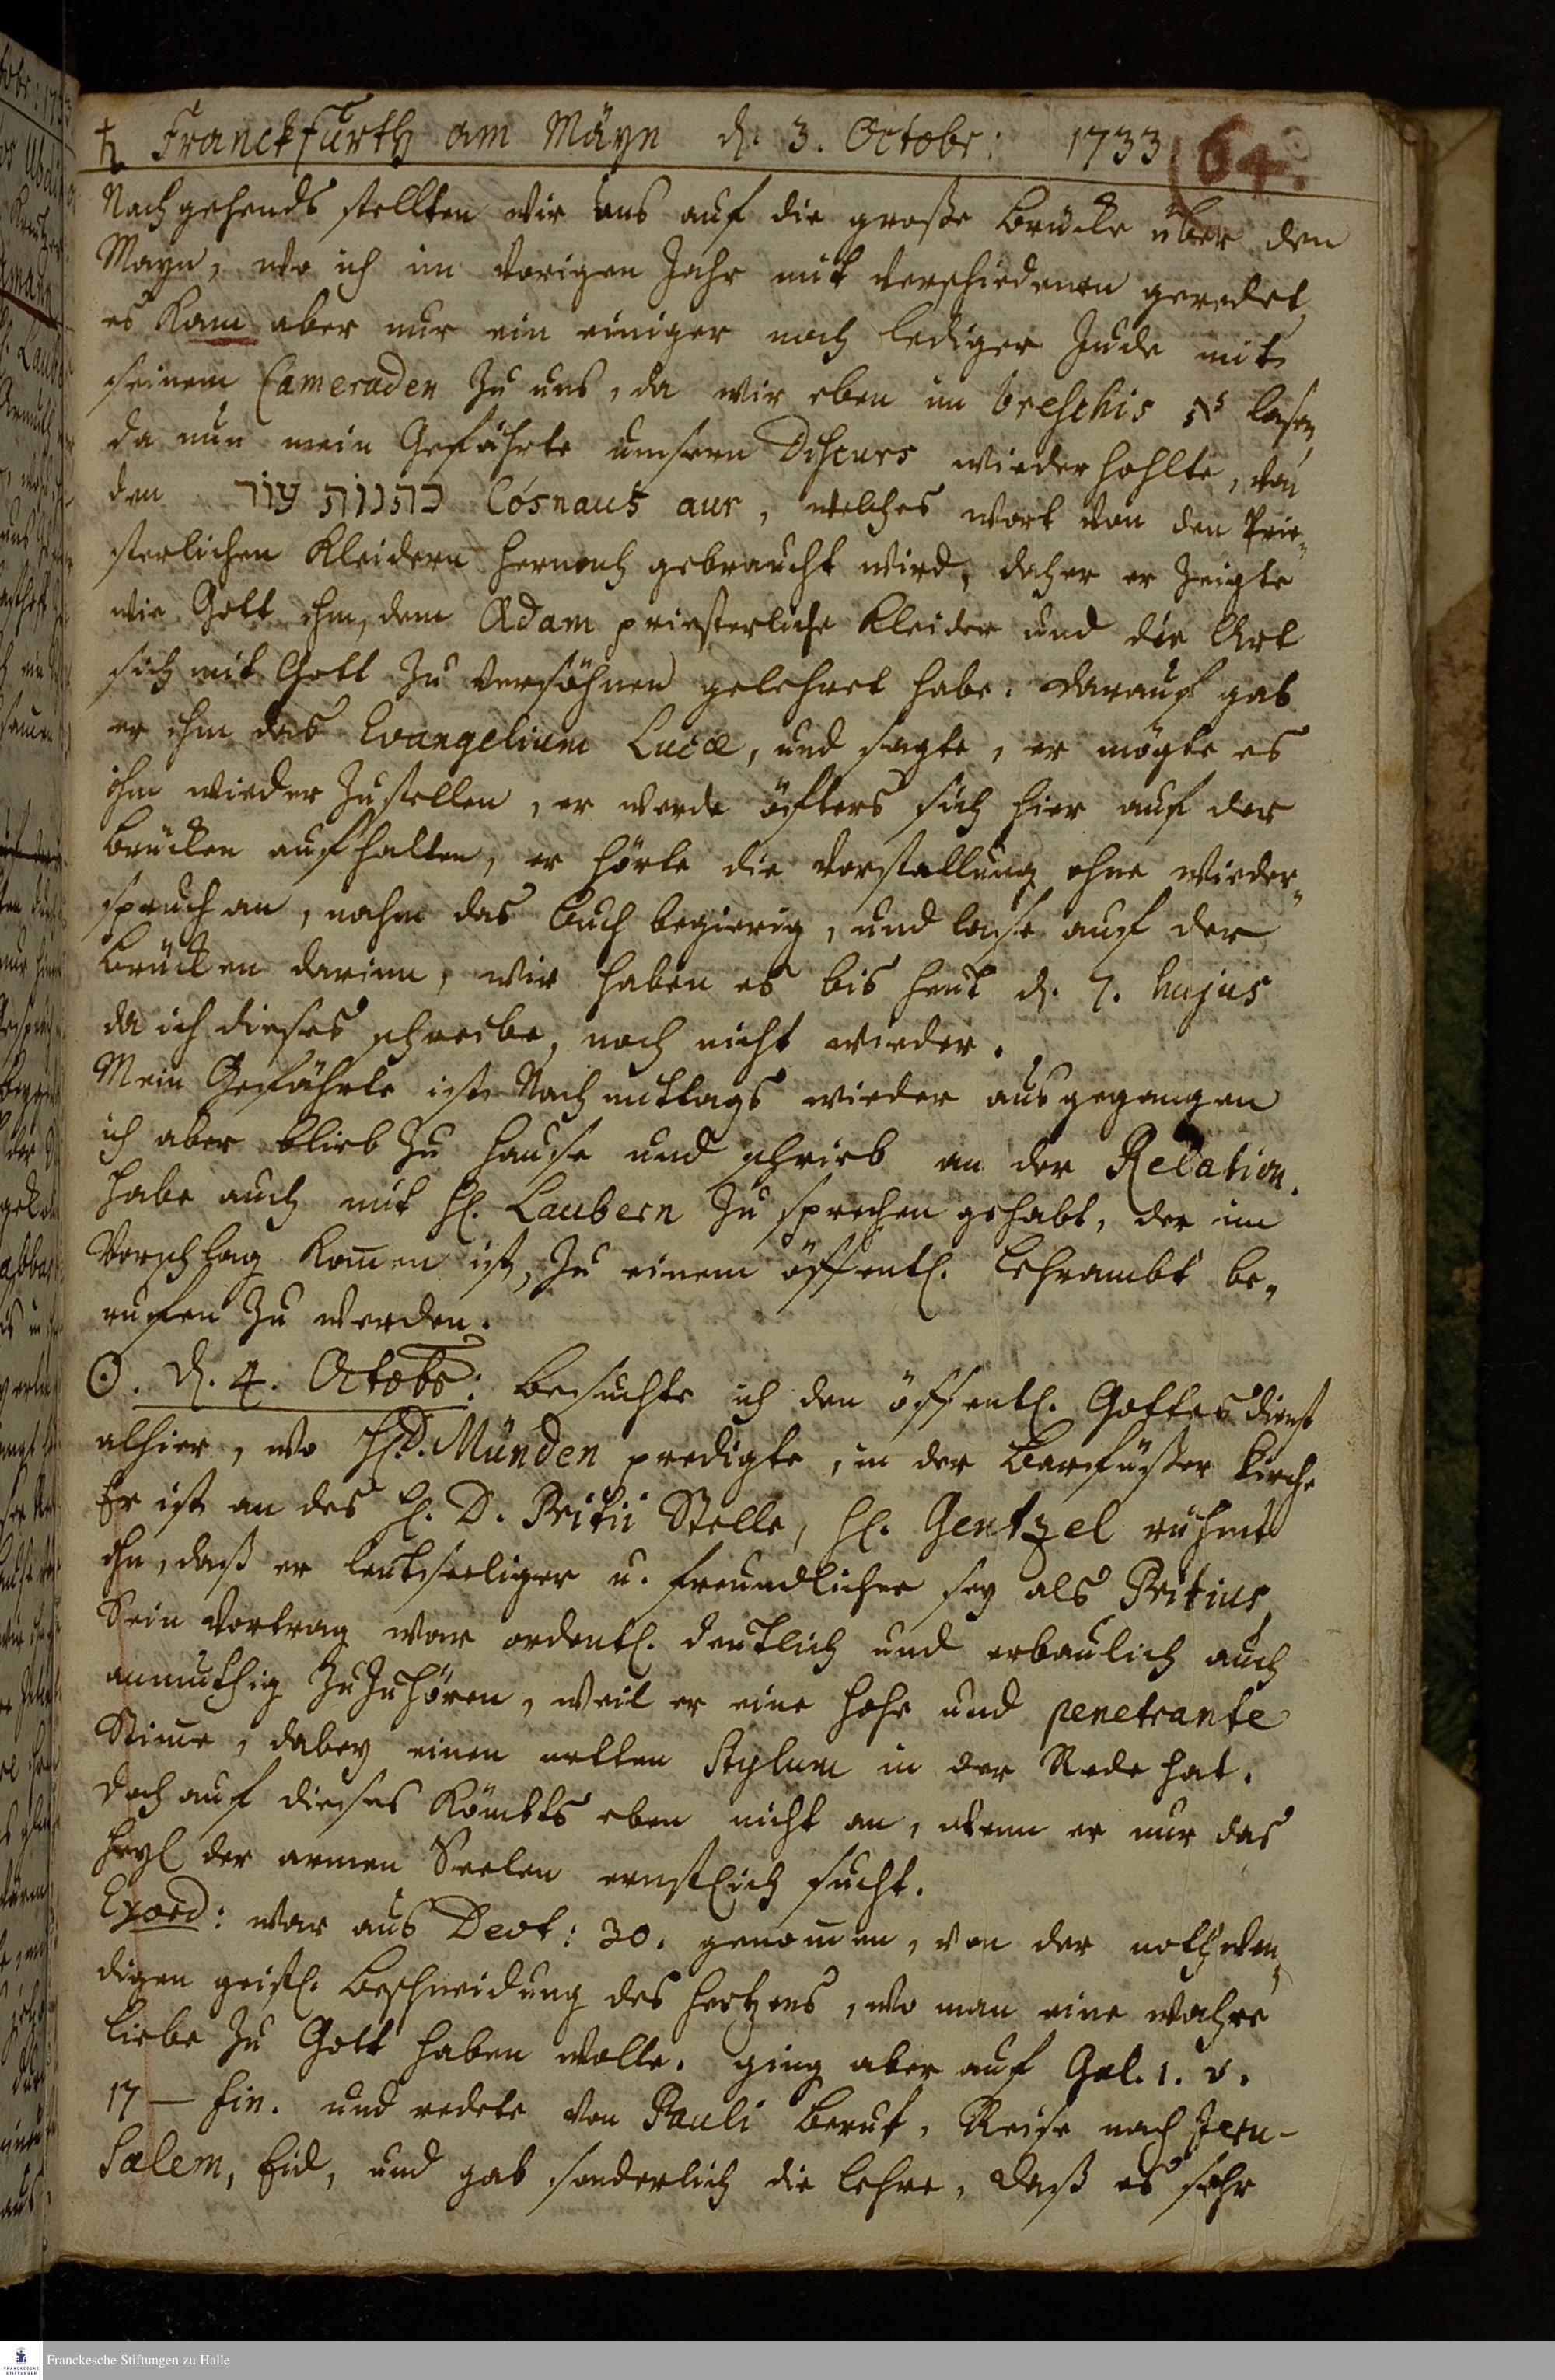 ♄ Franckfurth am Mäyn d. 3. Octobr: 1733 64.
Nachgehends stellten wir uns auf die große Brücke über den
Mayn, wo ich im vorigen Jahr mit verschiedenen geredet,
es kam aber nur ein einiger noch lediger Jude mit
seinem Cameraden zu uns, da wir eben im breschis lasen,
da nun mein Gefährte unsern Discurs wiederhohlte, von
den כתנות עור Cosnaus aur, welches wort von den Prie-
sterlichen Kleidern hernach gebraucht wird, daher er zeigte
wie Gott ihm, dem Adam priesterliche Kleider und die Art
sich mit Gott zu versöhnen gelehret habe. Darauf gab
er ihm das Evangelium Lucæ, und sagte, er mögte es
ihm wieder zustellen, er werde öffters sich hier auf der
Brücken aufhalten, er hörte die Vorstellung ohne wieder-
spruch an, nahm das Buch begierig, und lase auf der
Brücken darinn, wir haben es bis heut d. 7. hujus
da ich dieses schreibe, noch nicht wieder.
Mein Gefährte ist Nachmittags wieder ausgegangen
ich aber blieb zu Hause und schrieb an der Relation.
habe auch mit H. Laubern zu sprechen gehabt, der im
Vorschlag kom̄en ist, zu einem öffentl. Lehrambt be-
ruffen zu werden.
☉. d. 4. Octobr: besuchte ich den öffentl. Gottesdienst
alhier, wo H. D. Münden predigte, in der Barfüßer Kirche
Er ist an des H. D. Pritii Stelle, H. Gentzel rühmt
ihn, daß er leutseeliger u. freundlicher sey als Pritius,
Sein Vortrag war ordentl. deutlich und erbaulich auch
anmuthig zuzuhören, weil er eine hohe und penetrante
Stim̄e, dabey einen netten Stylum in der Rede hat.
Doch auf dieses kömts eben nicht an, wenn er nur das
Heyl der armen Seelen ernstlich sucht.
Exord: war aus Devt: 30. genom̄en, von der nothwen-
digen geistl. Beschneidung des Hertzens, wo man eine wahre
Liebe zu Gott haben wolle. ging aber auf Gal. 1. v.
17 — fin. und redete von Pauli Beruf, Reise nach Jeru-
salem, Eid, und gab sonderlich die Lehre, daß es sehr
Franckesche Stiftungen zu Halle